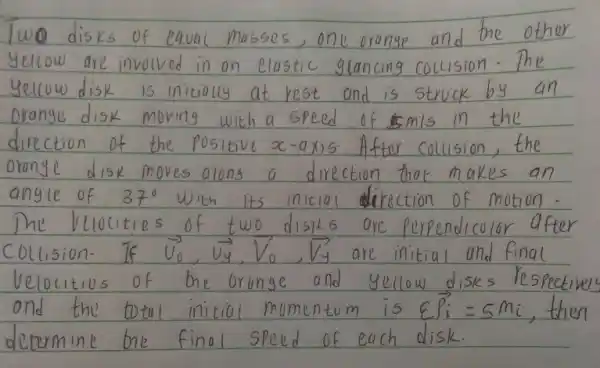 Two disks of equal masses, one orange and the other
yellow are involved in an elastic glancing collision. The
yellow disk is initially at rest and is struck by an
orange disk moving with a speed of 5m/s in the
direction of the positive x-axis After collusion, the
orange disk moves along a direction that makes an
angle of 37° with its inicial direction of motion.
The velocities of two disks are perpendicular after
collision. If U⃗o, U⃗y, V⃗o, V⃗y are initial and final
velocities of the orange and yellow disks respectively
and the total initial momentum is ΣP⃗i = 5mi, then
determine the final speed of each disk.